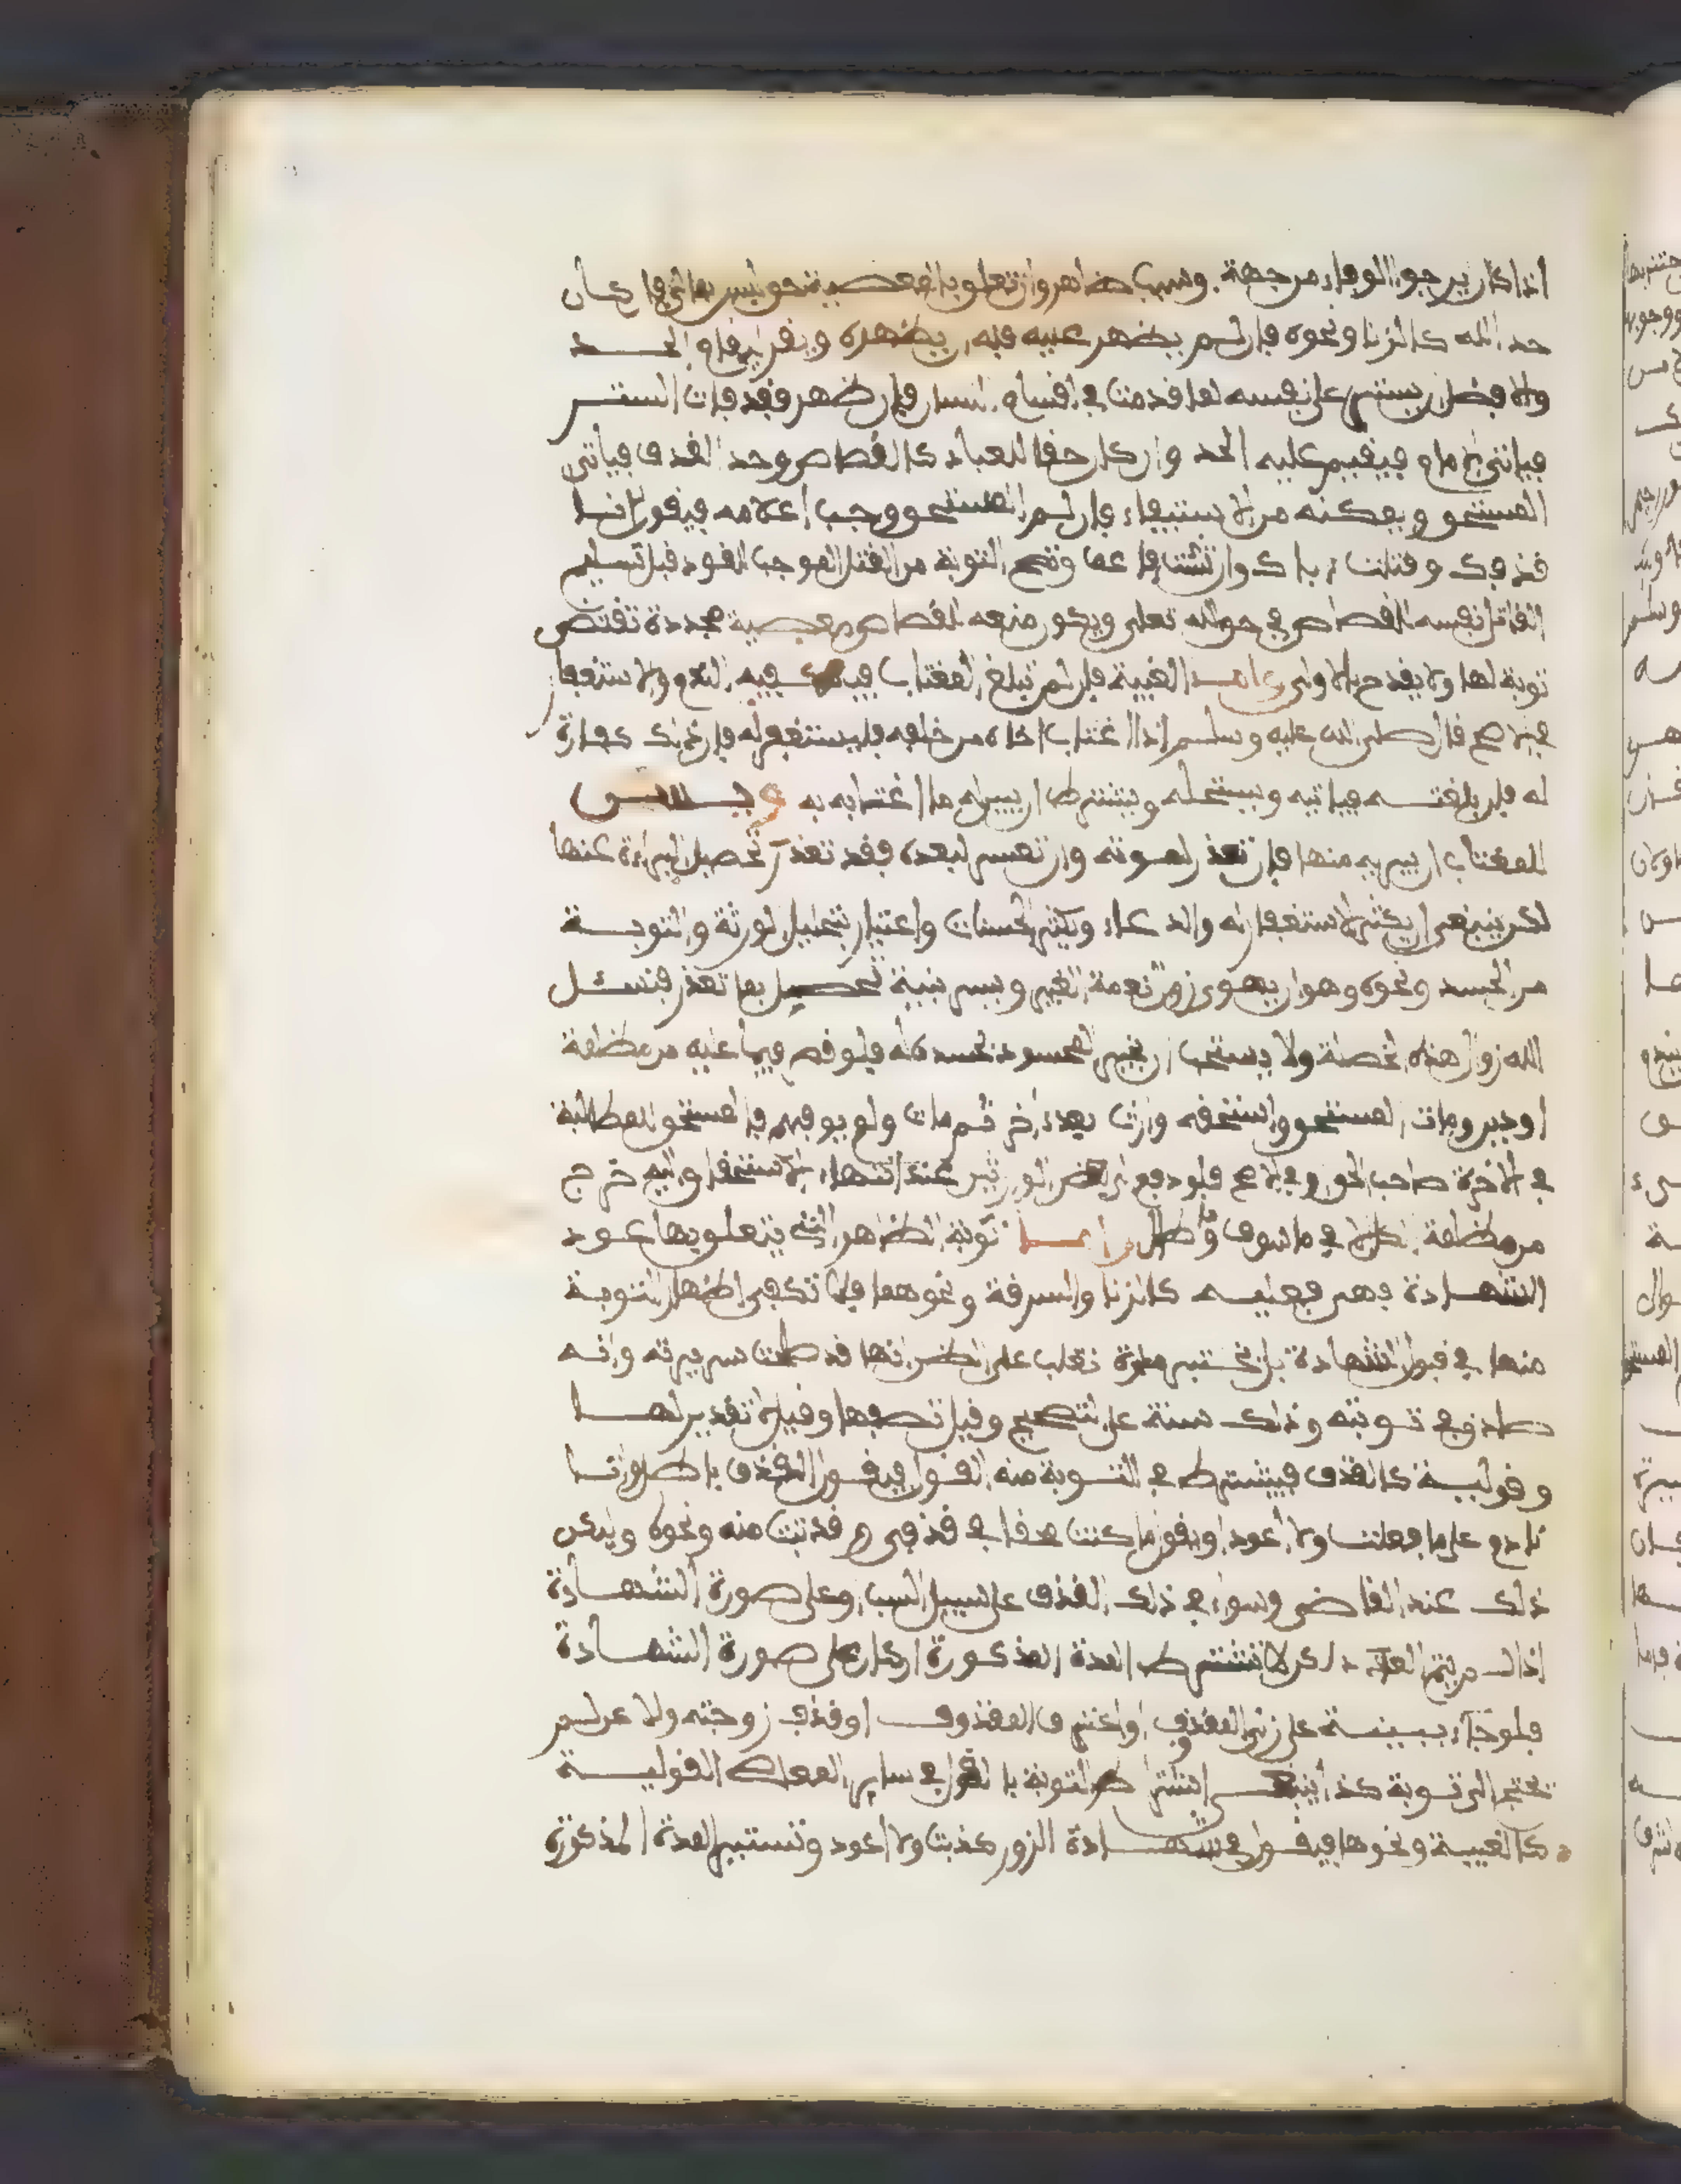 اذا كان يرجوا الوفاء من جهة وسبب ظاهر وان تعلق بالمعصية حق ليس بمالي فان كان
حد الله كالزنا ونحوه فان لم يظهر عليه فله ان يظهره ويقر ليقام الحد
والافضل ان يستر على نفسه لما قدمت في اقسام فان ظهر فقد فات الستر
فياتي الامام فيقيم عليه الحد وان كان حقا للعباد كالقصاص وحد القذف فياتي
المستحق ويمكنه من الاستيفاء فان لم المستحق وجب اعلامه فيقول انا
قذفتك وقتلت اباك وان شئت فاعف وتصح التوبة من القتل الموجب للقود قبل تسليم
القاتل نفسه للقصاص في حق الله تعلى ويكون منعه القصاص معصية مجددة تقتضي
توبة لها ولا يقدح في الاولى الغيبة فان لم تبلغ المغتاب فيكفي فيه الندم والاستغفار
قال صلى الله عليه وسلم اذا اغتاب اخاه من خلفه فليستغفر له فان ذلك كفارة
له فان بلغته فياتيه ويستحله ويشترط ان يبين له ما اغتابه به
للمغتاب ان يبريه منها فان تعذر لموته وان تعسر لبعده فقد تعذر تحصيل البراءة عنها
لكن ينبغي ان يكثر الاستغفار له والدعاء ويكثر الحسنات واعتبار بتحليل الورثة والتوبة
من الحسد ونحوه وهو ان يهوى زوال نعمة الغير ويسر ببلية تحصل بما تقذر فنسئل
الله زوال هذه الخصلة ولا يستحب ان يخبر المحسود بحسده له فلو قصر فيما عليه من مظلمة
او دين ومات المستحق واستحقه وارث بعد اخر ثم مات ولم يوفهم فالمستحق للمطالبة
في الاخرة صاحب الحق وفي الاصح فلو دفع الى بعض الوارثين عند انتهاء الاستحقاق اليه خرج
من مظلمة الكل الا في ما سوف وماطل توبة الظاهر التي يتعلق بها عود
الشهادة فهي فعلية كالزنا والسرقة ونحوهما فلا تكفي اظهار التوبة
منها في قبول الشهادة بل تختبر مدة تغلب على الظن انها قد صلحت سريرته وانه
صادق في توبته وذلك سنة على الصحيح وقيل نصفها وقيل لا تقدير لها
وقولية كالقذف فيشترط في التوبة منه القول فيقول القذف باطل وانا
نادم على ما فعلت ولا اعود او يقول ما كنت محقا في قذفي وقد تبت منه ونحوه وليكن
ذلك عند القاضي وسواء في ذلك القذف على سبيل السب او على صورة الشهادة
اذا لم يتم العدد لكن لا تشترط المدة المذكورة ان كان على صورة الشهادة
فلو جاء ببينة على زنى المقذوف او اعترف المقذوف او قذف زوجته ولاعن لم
تحتج الى توبة كذا ينبغي اشتراط التوبة بالقول في ساير المعاصي القولية
كالغيبة ونحوها فيقول في شهادة الزور كذبت ولا اعود وتستبرء المدة المذكورة